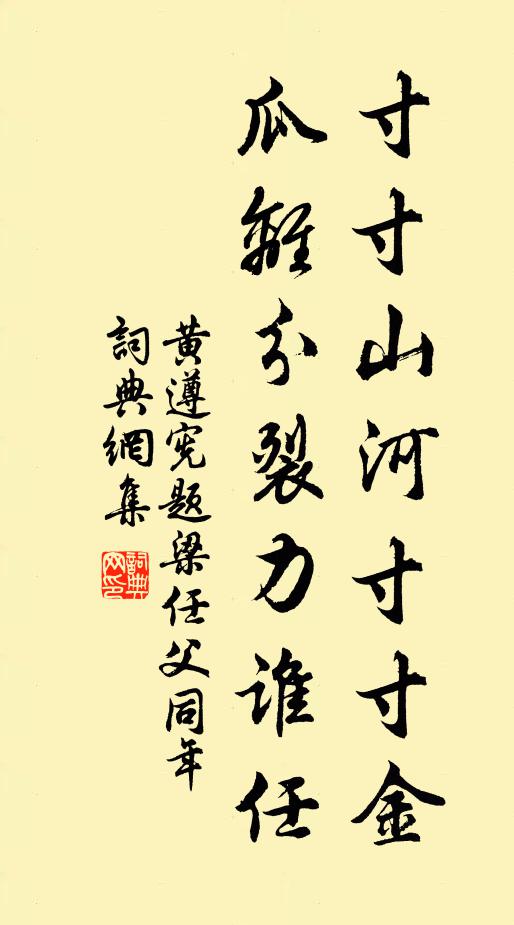 寸寸山河寸寸金
瓜離分裂力誰任
黄遵宪题梁任父同年
詞典網集
詞典网印